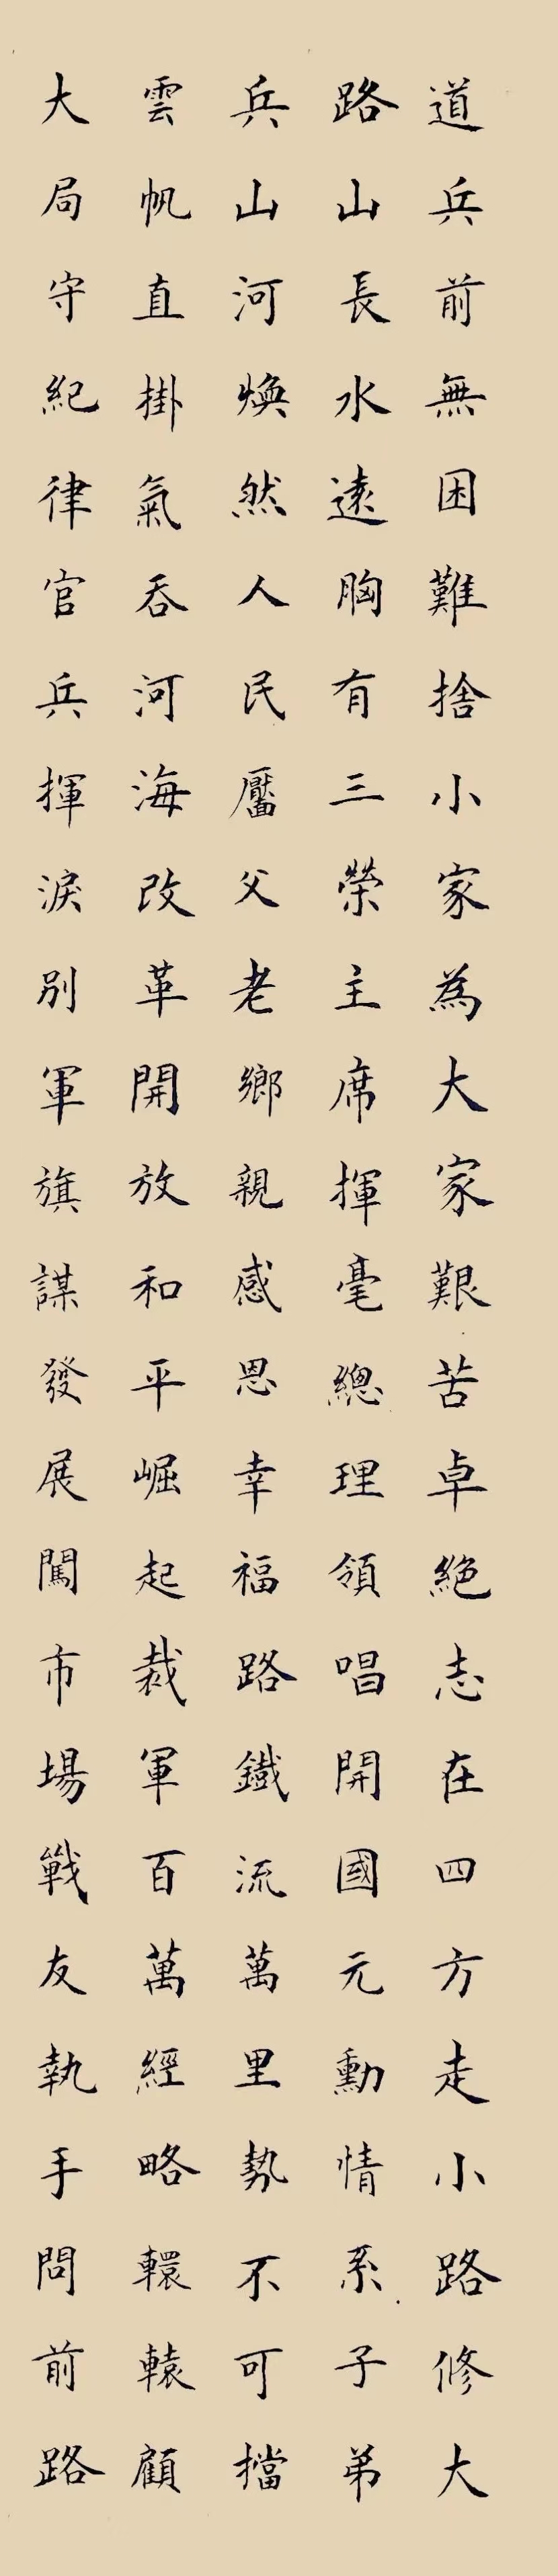 道兵前無困難捨小家為大家艱苦卓絕志在四方走小路修大
路山長水遠胸有三榮主席揮毫總理領唱開國元勳情系子弟
兵山河煥然人民靨父老鄉親感恩幸福路鐵流萬里勢不可擋
雲帆直掛氣吞河海改革開放和平崛起裁軍百萬經略轘轅顧
大局守紀律官兵揮淚別軍旗謀發展闖市場戰友執手問前路